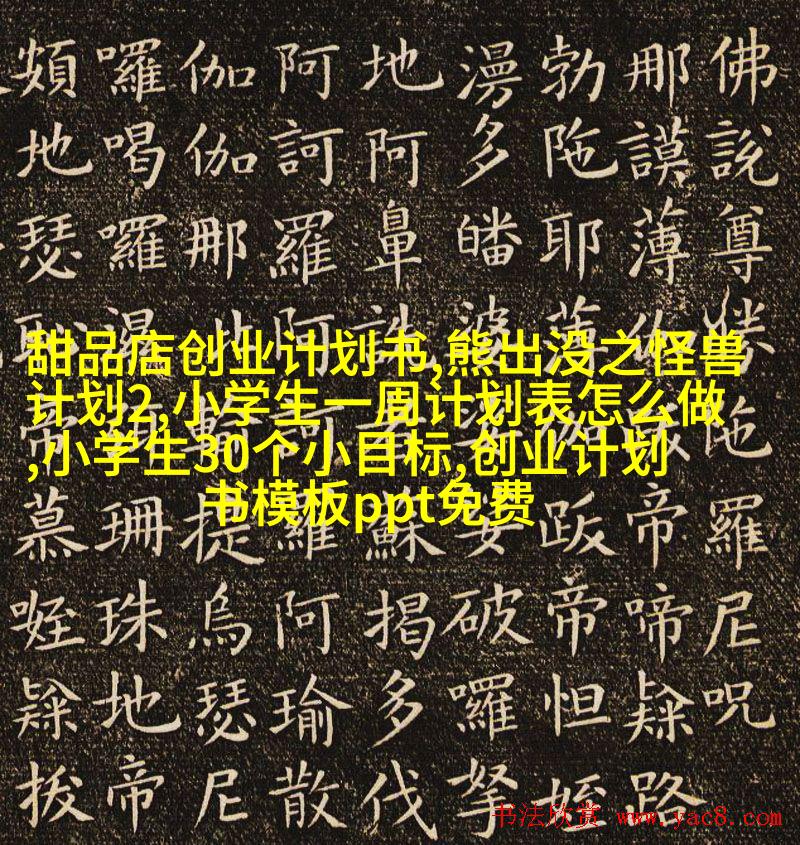 佛說尊陁羅尼呪
那謨薄帝啼隸路
勃陁耶薄跋帝怛姪
漫多皤婆破囉拏
地阿鼻詵蘇揭多伐
阿訶羅阿羅阿瑜散
伽伽那提烏瑟尼
囉喝囉珊珠地帝
頞地瑟慕拔
甜品店创业计划书,熊出没之怪兽
计划2,小学生一周计划表怎么做
,小学生30个小目标,创业计划
书模板ppt免费
书法欣赏 www.yac8.com